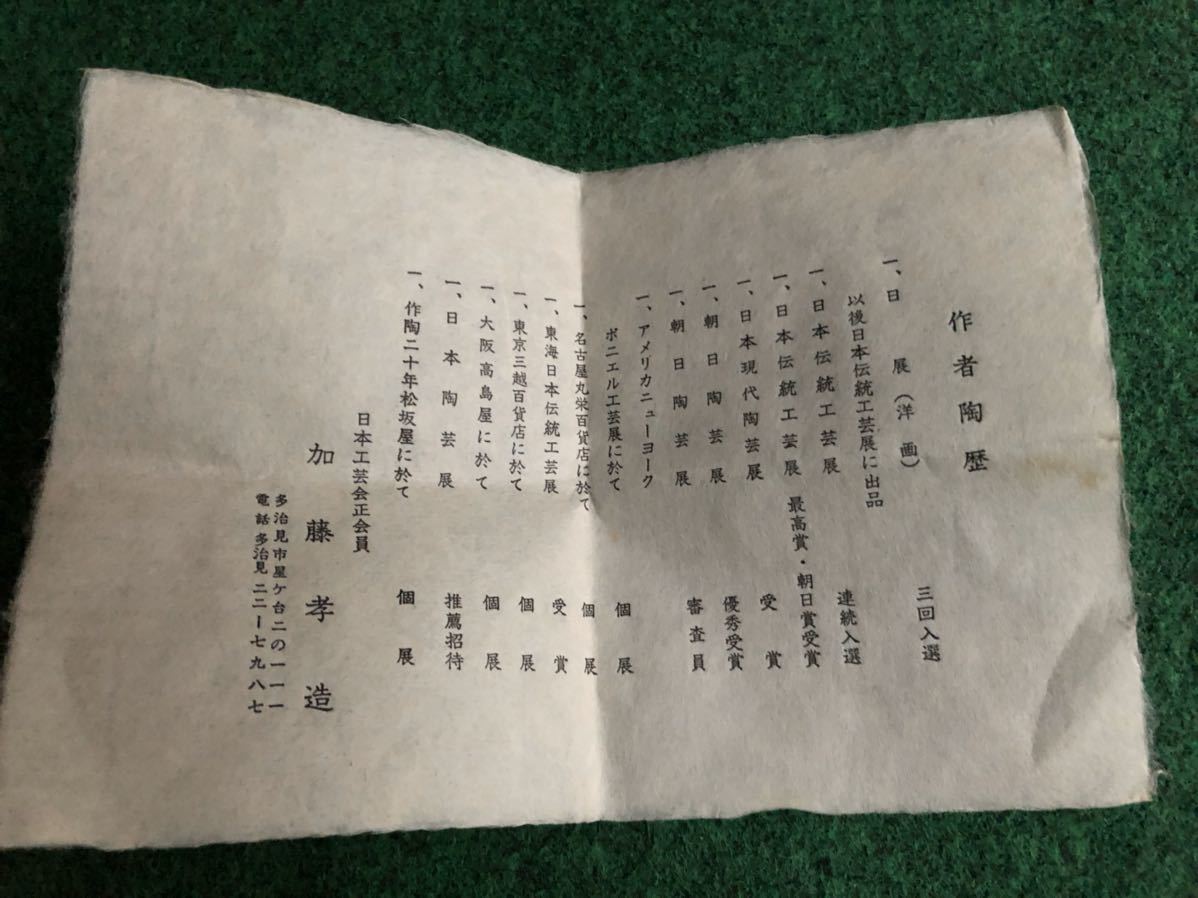 作者陶歴
一、日展（洋画）　三回入選
以後日本伝統工芸展に出品
一、日本伝統工芸展　連続入選
一、日本伝統工芸展　最高賞・朝日賞受賞
一、日本現代陶芸展　受賞
一、朝日陶芸展　優秀受賞
一、朝日陶芸展　審査員
一、アメリカニューヨーク
ボニエル工芸展に於て　個展
一、名古屋丸栄百貨店に於て　個展
一、東海日本伝統工芸展　受賞
一、東京三越百貨店に於て　個展
一、大阪高島屋に於て　個展
一、日本陶芸展　推薦招待
一、作陶二十年松坂屋に於て　個展
日本工芸会正会員
加藤孝造
多治見市星ケ台二の一一一
電話 多治見 二二ー七九八七